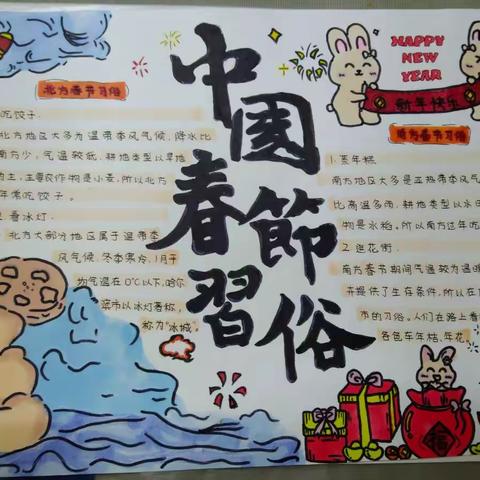 中國
春節
習俗
北方春节习俗
吃饺子.
北方地区大多为温带季风气候,降水比
南方少,气温较低,耕地类型以旱地
为主,主要农作物是小麦,所以北方
年常吃饺子。
2.看冰灯.
北方大部分地区属于温带季
风气候,冬季寒冷,1月平
均气温在0℃以下,哈尔
滨市以冰灯著称,
称为"冰城"。
HAPPY
NEW
YEAR
新年快乐
南方春节习俗
1.蒸年糕
南方地区大多是亚热带季风气
比高温多雨,耕地类型以水田
物是水稻。所以南方过年吃
2.逛花街.
南方春节期间气温较为温暖
开提供了生存条件,所以在
市的习俗。人们在路上看
各色车年桔、年花
福